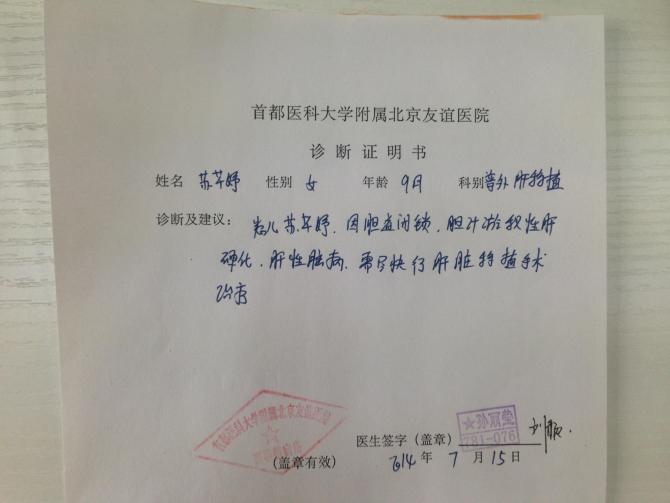 首都医科大学附属北京友谊医院
诊断证明书
姓名 苏芊妤 性别 女 年龄 9月 科别 普外肝移植
诊断及建议： 患儿苏芊妤，因胆道闭锁，胆汁淤积性肝
硬化，肝性脑病，需尽快行肝脏移植手术
治疗
首都医科大学附属北京友谊医院
医生签字（盖章） 孙丽莹
781-076
(盖章有效) 2014年 7月 15日